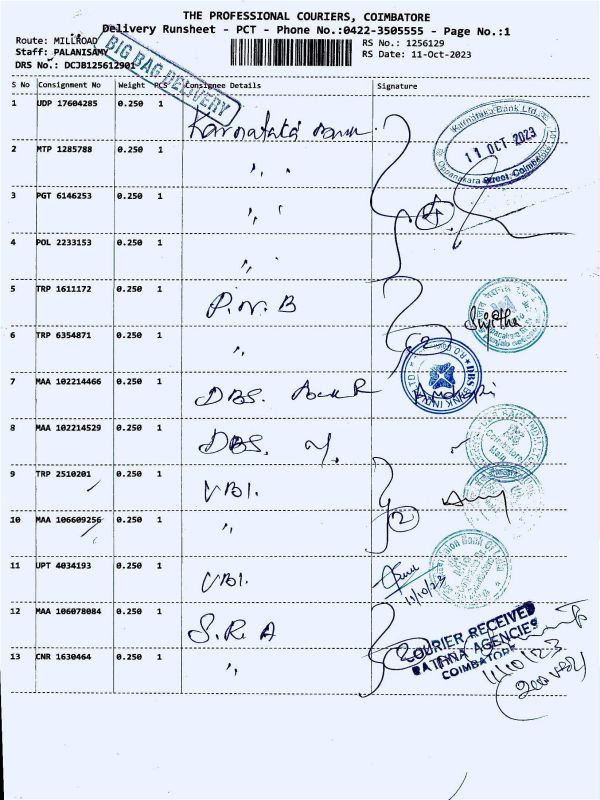 THE PROFESSIONAL COURIERS, COIMBATORE
Delivery Runsheet - PCT - Phone No.:0422-3505555 - Page No.:1
Route: MILLROAD
RS No.: 1256129
Staff: PALANISAMY
RS Date: 11-Oct-2023
DRS No.: DCJB125612901
BIG BAG DELIVERY
S No Consignment No Weight PCS Consignee Details Signature
1 UDP 17604285 0.250 1 Karnataka Bank
Karnataka Bank Ltd.
11 OCT 2023
2 MTP 1285788 0.250 1 ,, ,,
3 PGT 6146253 0.250 1 ,, ,,
4
4 POL 2233153 0.250 1 ,, ,,
5 TRP 1611172 0.250 1 P.N.B
Sujitha
6 TRP 6354871 0.250 1 ,,
2
7 MAA 102214466 0.250 1 DBS. Bank
DBS BANK INDIA LTD
8 MAA 102214529 0.250 1 DBS.
9 TRP 2510201 0.250 1 UBI.
10 MAA 106609256 0.250 1 ,,
2
11 UPT 4034193 0.250 1 UBI.
Union Bank Of India
11/10/23
12 MAA 106078084 0.250 1 S.R.A
COURIER RECEIVED
RATHNA AGENCIES
COIMBATORE
13 CNR 1630464 0.250 1 ,,
11/10/23